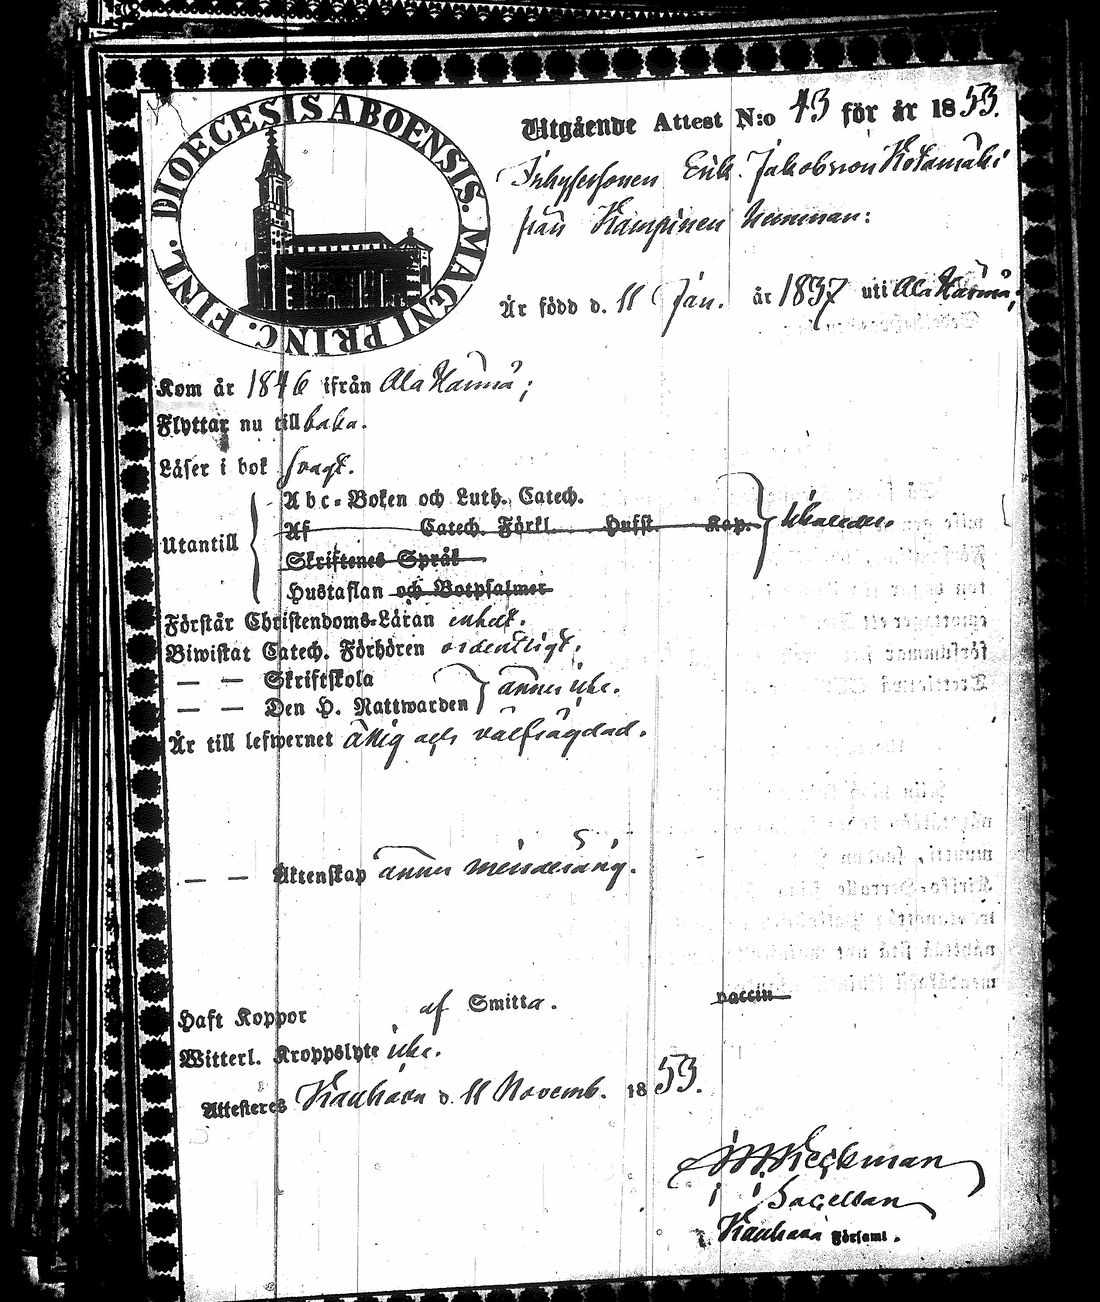 DIOECESIS ABOENSIS. MAGNI PRINC. FINL.
Utgående Attest N:o 43 för år 1853.
Inhysesonen Erik Jakobsson Kotamäki
från Kamppinen hemman:
Är född d. 11 Jan. år 1837 uti Ala Härmä;
Kom år 1846 ifrån Ala Härmä;
Flyttar nu tillbaka.
Läser i bok svagt.
Utantill
Abc-Boken och Luth. Catech.
Af Catech. Förkl. Husst. Kap.
Skriftenes Språk
Hustaflan och Botpsalmer
Förstår Christendoms-Läran enkelt.
Biwistat Catech. Förhören ordentligt.
— — Skriftskola
— — Den H. Nattwarden ännu icke.
Är till lefwernet ärlig och välfrägdad.
— — Äktenskap ännu minderårig.
Haft Koppor af Smitta. vaccin
Witterl. Kroppslyte icke.
Attesteres Kauhava d. 11 Novemb. 1853.
Kauhava Församl.